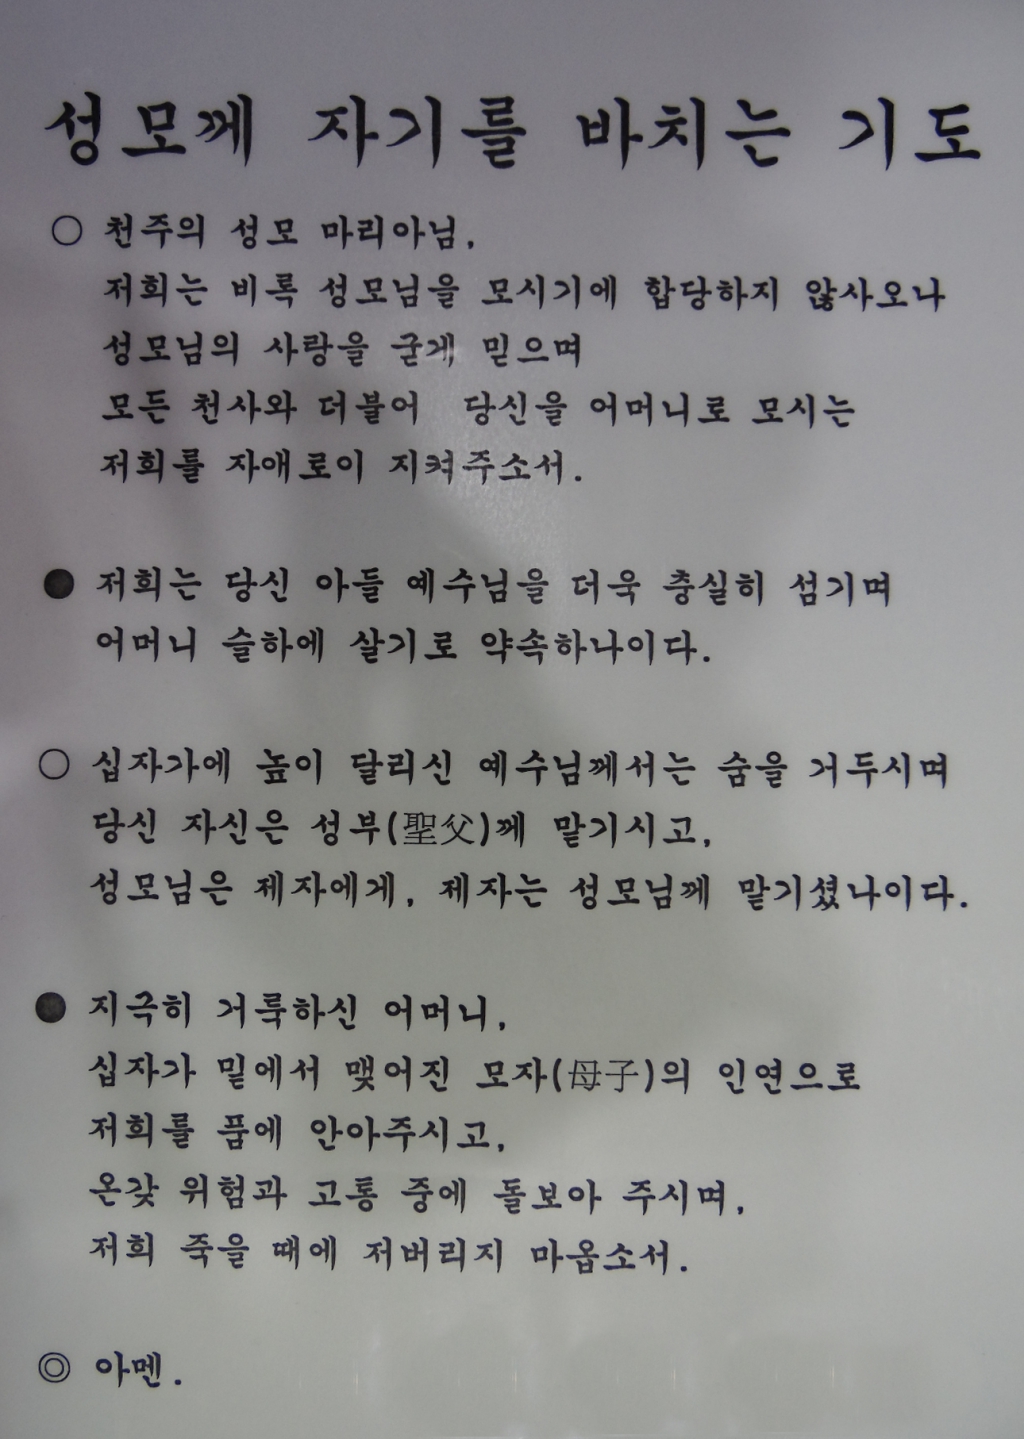 성모께 자기를 바치는 기도
○ 천주의 성모 마리아님,
저희는 비록 성모님을 모시기에 합당하지 않사오나
성모님의 사랑을 굳게 믿으며
모든 천사와 더불어 당신을 어머니로 모시는
저희를 자애로이 지켜주소서.
● 저희는 당신 아들 예수님을 더욱 충실히 섬기며
어머니 슬하에 살기로 약속하나이다.
○ 십자가에 높이 달리신 예수님께서는 숨을 거두시며
당신 자신은 성부(聖父)께 맡기시고,
성모님은 제자에게, 제자는 성모님께 맡기셨나이다.
● 지극히 거룩하신 어머니,
십자가 밑에서 맺어진 모자(母子)의 인연으로
저희를 품에 안아주시고,
온갖 위험과 고통 중에 돌보아 주시며,
저희 죽을 때에 저버리지 마옵소서.
◎ 아멘.